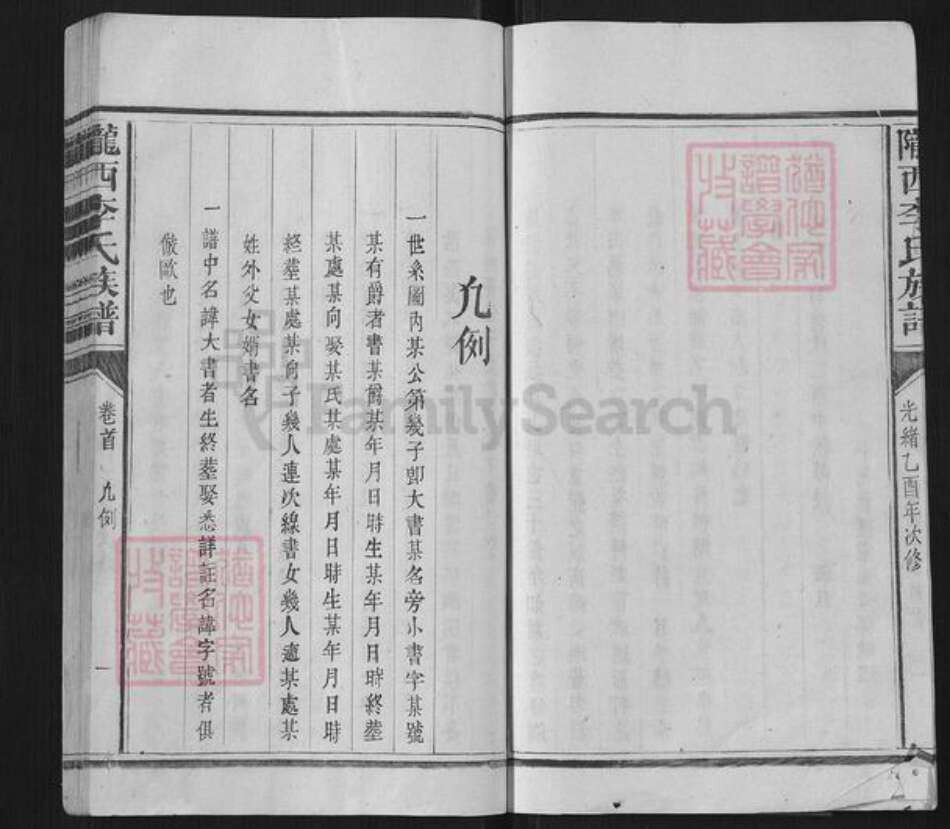 隴西李氏族譜
光緒乙酉年次修
凢例
一世系圖內某公第幾子卽大書某名旁小書字某號
某有爵者書某爵某年月日時生某年月日時終塟
某處某向娶某氏某處某年月日時生某年月日時
終塟某處某向子幾人連次線書女幾人適某處某
姓外父女婿書名
一譜中名諱大書者生終塟娶悉詳註名諱字號者俱
倣歐也
隴西李氏族譜
卷首
凢例
一
FamilySearch
譜學會
收藏
譜學會
收藏